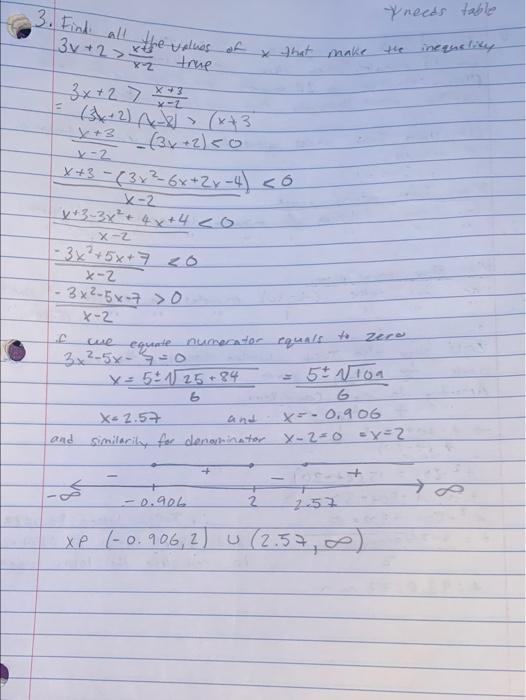 * needs table
3. Find all the values of x that make the inequality
3x+2 > x+3/x-2 true
3x+2 > x+3/x-2
= (3x+2)(x-2) > (x+3
x+3/x-2 - (3x+2) < 0
x+3 - (3x²-6x+2x-4)/x-2 < 0
x+3-3x²+4x+4/x-2 < 0
-3x²+5x+7/x-2 < 0
- 3x²-5x-7/x-2 > 0
if we equate numerator equals to zero
3x²-5x-7=0
x = 5±√25+84/6 = 5±√109/6
x=2.57 and x=-0.906
and similarily for denominator x-2=0 =x=2
- + - +
-∞ -0.906 2 2.57 ∞
xε (-0.906,2) ∪ (2.57,∞)